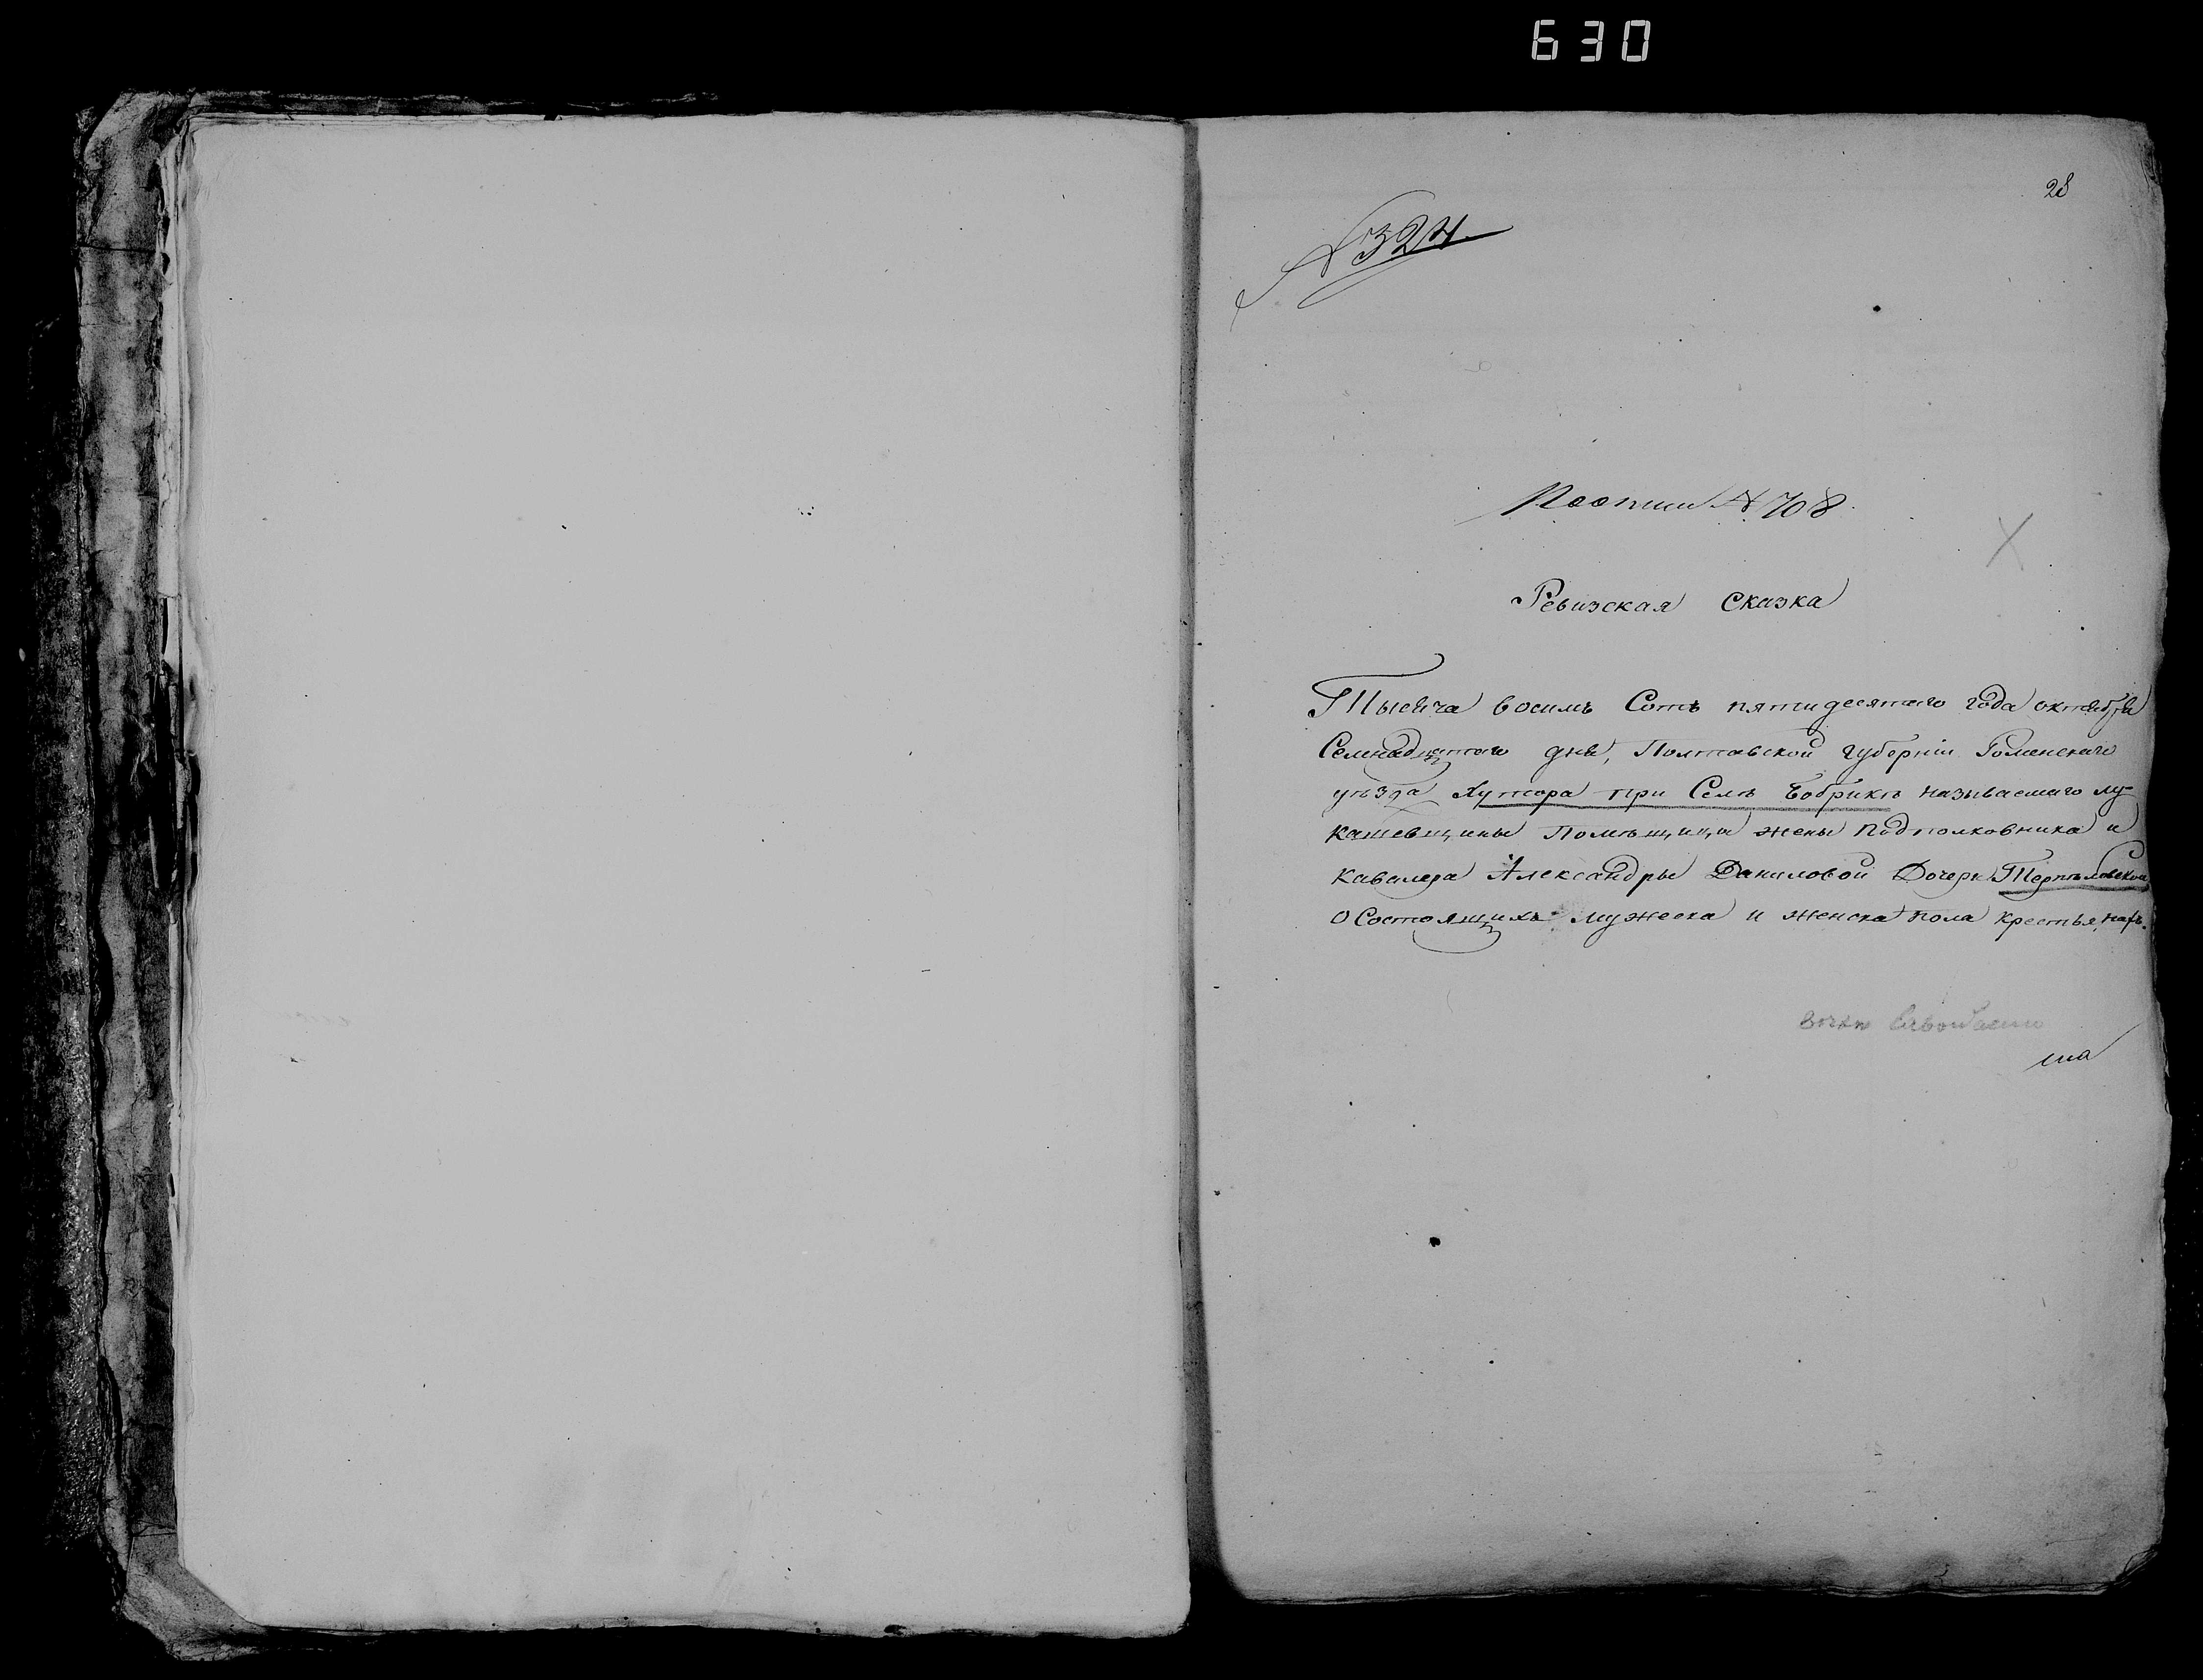 630
28
№ 324
Росписи № 708
Ревизская Сказка
Тысяча восимь Сотъ пятидесятаго года октября
Семнадцатаго дня, Полтавской губерніи Роменскаго
уѣзда Хутора при Селѣ Бобрикѣ называемаго лу-
кашевщины Помѣщици жены Подполковника и
Кавалера Александры Даниловой Дочери Терпѣловской
О Состоящихъ мужеска и женска пола крестьянахъ.